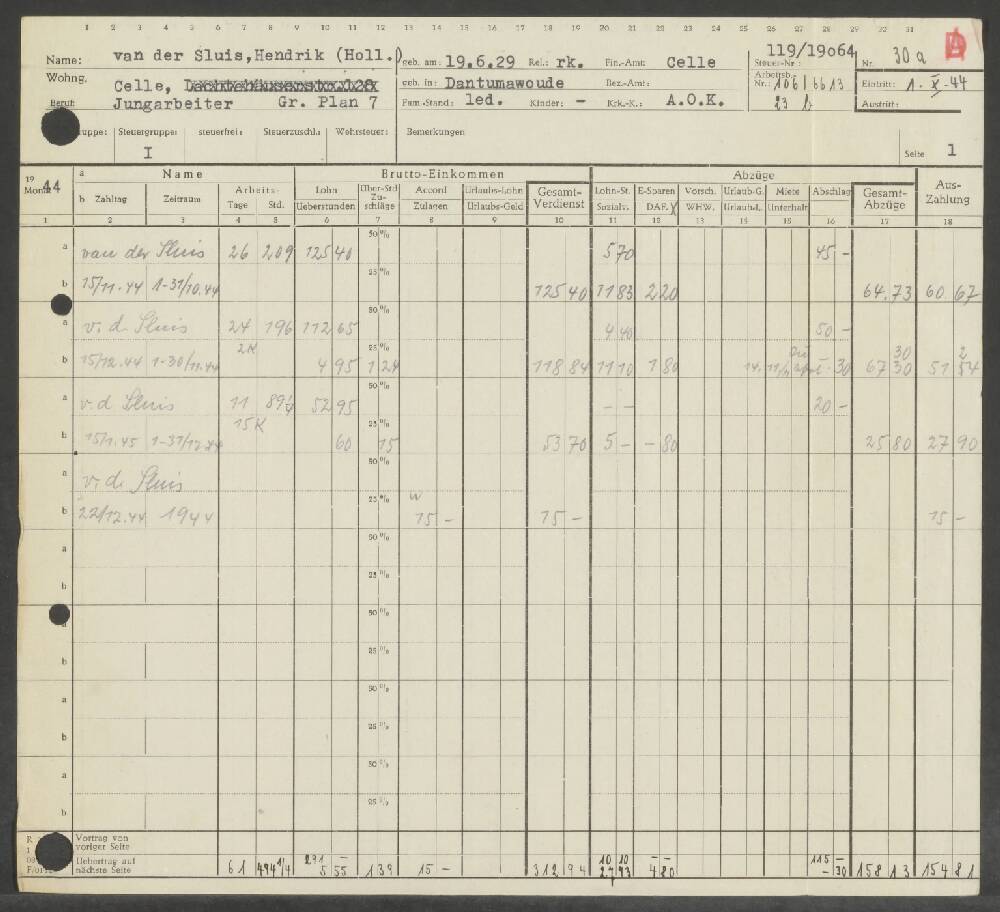 1 2 3 4 5 6 7 8 9 10 11 12 13 14 15 16 17 18 19 20 21 22 23 24 25 26 27 28 29 30 31
Name: van der Sluis, Hendrik (Holl.) geb. am: 19.6.29 Rel.: rk. Fin.-Amt: Celle 119/19064 Steuer-Nr.: Nr. 30a
Wohng. Celle, geb. in: Dantumawoude Bez.-Amt: Arbeitsb. Nr.: 106/6613 Eintritt: 1. X. 44
Beruf: Jungarbeiter Gr. Plan 7 Fam.-Stand: led. Kinder: - Krk.-K.: A.O.K. 23 A Austritt:
uppe: Steuergruppe: I steuerfrei: Steuerzuschl.: Wehrsteuer: Bemerkungen Seite 1
19 44 Monat a Name Brutto-Einkommen Abzüge Aus-Zahlung
b Zahltag Zeitraum Arbeits- Tage Std. Lohn Ueberstunden Über-Std Zu-schläge Accord Zulagen Urlaubs-Lohn Urlaubs-Geld Gesamt-Verdienst Lohn-St. Sozialv. E-Sparen DAF. X Vorsch. WHW. Urlaub-G. Urlaub-L. Miete Unterhalt Abschlag Gesamt-Abzüge
1 2 3 4 5 6 7 8 9 10 11 12 13 14 15 16 17 18
a van der Sluis 26 209 125 40 50% 5 70 45 -
b 15/11.44 1-31/10.44 25% 125 40 11 83 2 20 64.73 60 67
a v. d. Sluis 24 196 112 65 50% 4 40 50 -
2K
b 15/12.44 1-30/11.44 4 95 25% 1 24 118 84 11 10 1 80 14. - 30 67 30 30 51 54 2
a v. d. Sluis 11 89¼ 52 95 50% - - 20 -
15K
b 15/1.45 1-31/12.44 60 25% 15 53 70 5 - - 80 25 80 27 90
a v. d. Sluis 50%
b 22/12.44 1944 25% w 15 - 15 - 15 -
a 50%
b 25%
a 50%
b 25%
a 50%
b 25%
a 50%
b 25%
Vortrag von voriger Seite
Uebertrag auf nächste Seite 61 494 1/4 291 - 5 55 1 39 15 - 312 94 10 10 27 93 - - 4 80 115 - - 30 158 13 154 81